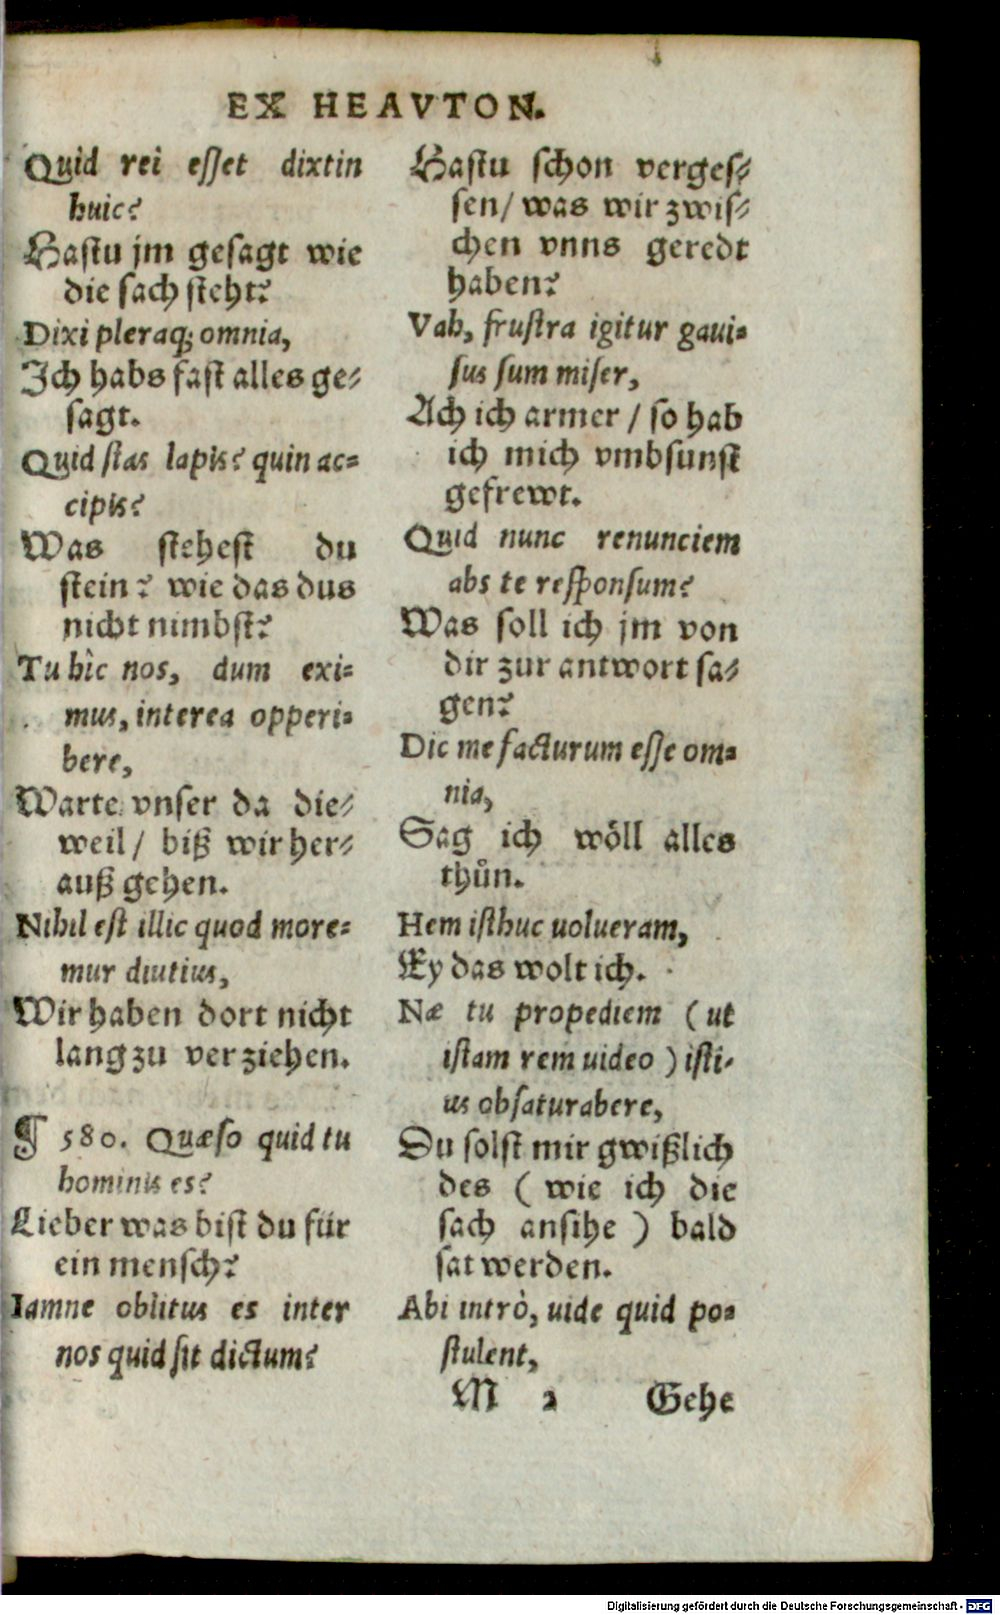 EX HEAVTON.
Quid rei esset dixtin
huic?
Hastu jm gesagt wie
die sach steht?
Dixi pleraq; omnia,
Ich habs fast alles ge-
sagt.
Quid stas lapis? quin ac-
cipis?
Was stehest du
stein? wie das dus
nicht nimbst?
Tu hîc nos, dum exi-
mus, interea opperi-
bere,
Warte vnser da die-
weil/ biß wir her-
auß gehen.
Nihil est illic quod more-
mur diutius,
Wir haben dort nicht
lang zu verziehen.
¶ 580. Quæso quid tu
hominis es?
Lieber was bist du für
ein mensch?
Iamne oblitus es inter
nos quid sit dictum?
Hastu schon verges-
sen/ was wir zwis-
chen vnns geredt
haben?
Vah, frustra igitur gaui-
sus sum miser,
Ach ich armer / so hab
ich mich vmbsunst
gefrewt.
Quid nunc renunciem
abs te responsum?
Was soll ich jm von
dir zur antwort sa-
gen?
Dic me facturum esse om-
nia,
Sag ich wöll alles
thůn.
Hem isthuc uolueram,
Ey das wolt ich.
Næ tu propediem ( ut
istam rem uideo ) isti-
us obsaturabere,
Du solst mir gwißlich
des ( wie ich die
sach ansihe ) bald
sat werden.
Abi intrò, uide quid po-
stulent,
M 2 Gehe
Digitalisierung gefördert durch die Deutsche Forschungsgemeinschaft - DFG